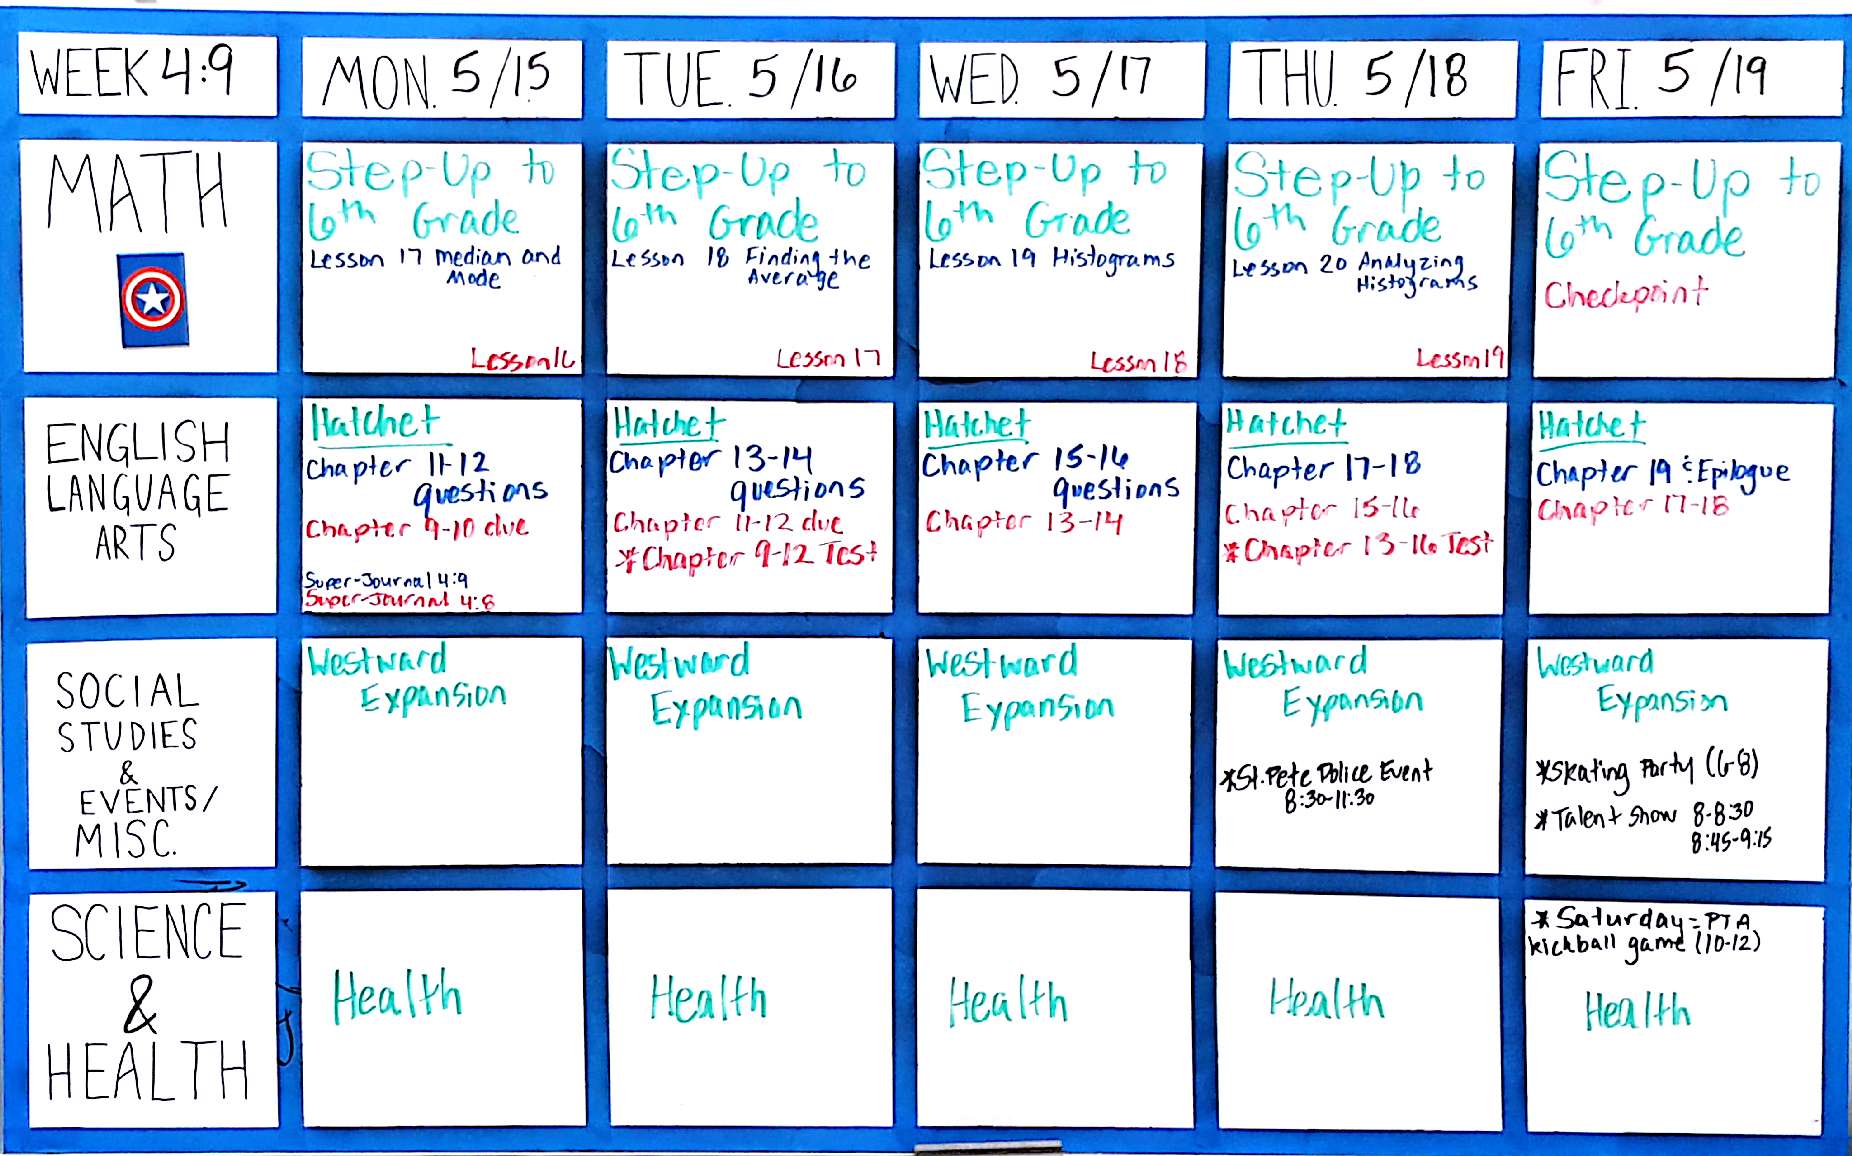 WEEK 4:9
MON. 5/15
TUE. 5/16
WED. 5/17
THU. 5/18
FRI. 5/19
MATH
Step-Up to
6th Grade
Lesson 17 Median and
Mode
Lesson 16
Step-Up to
6th Grade
Lesson 18 Finding the
Average
Lesson 17
Step-Up to
6th Grade
Lesson 19 Histograms
Lesson 18
Step-Up to
6th Grade
Lesson 20 Analyzing
Histograms
Lesson 19
Step-Up to
6th Grade
Checkpoint
ENGLISH
LANGUAGE
ARTS
Hatchet
Chapter 11-12
questions
Chapter 9-10 due
Super-Journal 4:9
Super-Journal 4:8
Hatchet
Chapter 13-14
questions
Chapter 11-12 due
*Chapter 9-12 Test
Hatchet
Chapter 15-16
questions
Chapter 13-14
Hatchet
Chapter 17-18
Chapter 15-16
*Chapter 13-16 Test
Hatchet
Chapter 19 & Epilogue
Chapter 17-18
SOCIAL
STUDIES
&
EVENTS/
MISC.
Westward
Expansion
Westward
Expansion
Westward
Expansion
Westward
Expansion
*St. Pete Police Event
8:30-11:30
Westward
Expansion
*Skating Party (6-8)
*Talent Show 8-8:30
8:45-9:15
SCIENCE
&
HEALTH
Health
Health
Health
Health
*Saturday = PTA
kickball game (10-12)
Health